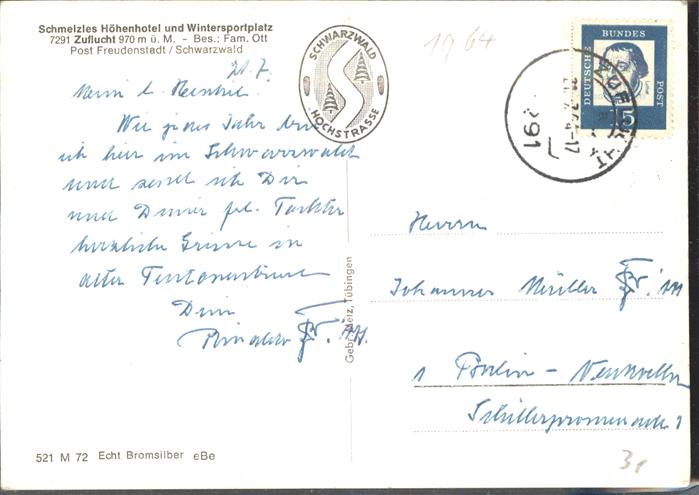 Schmelzles Höhenhotel und Wintersportplatz
7291 Zuflucht 970 m ü. M. - Bes.: Fam. Ott
Post Freudenstadt / Schwarzwald
SCHWARZWALD
HOCHSTRASSE
1964
DEUTSCHE BUNDES POST
15
21.7.
Mein l.
Wie jedes Jahr bin
ich hier im Schwarzwald
und sende ich Dir
und Deiner
herzliche Grüsse in
alter
Dein
Herrn
Johannes Müller
1 Berlin - Neukölln
Schillerpromenade
Gebr. Metz, Tübingen
521 M 72 Echt Bromsilber eBe